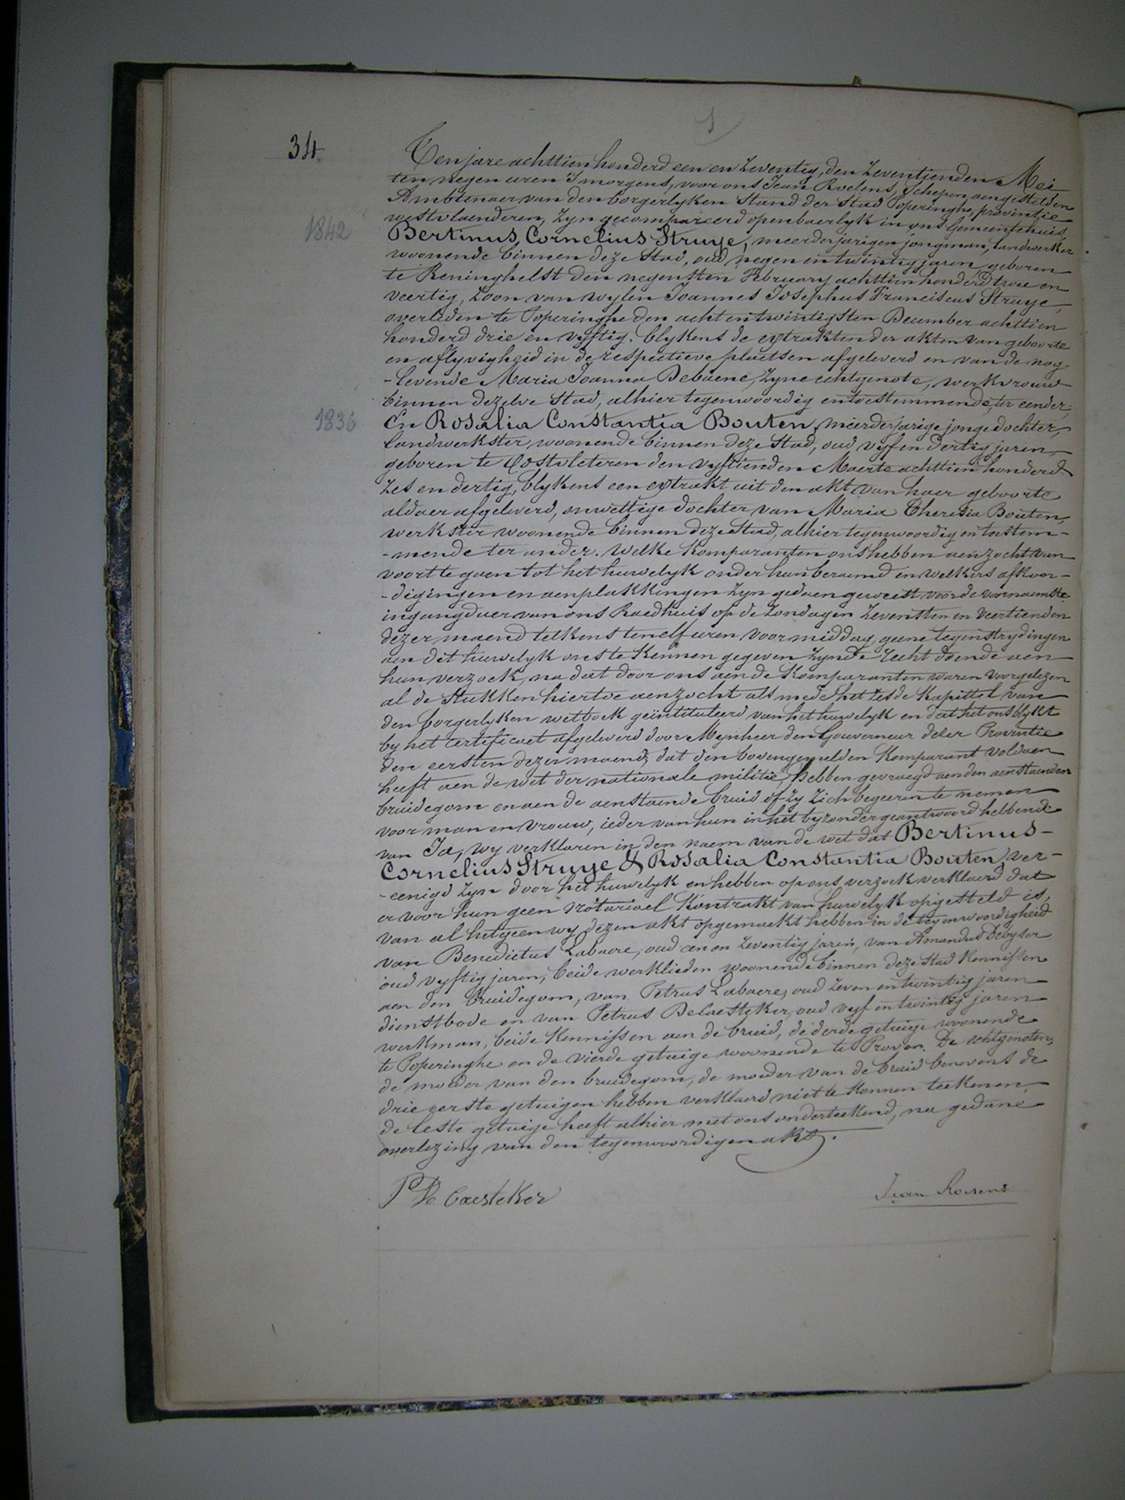 34.
Ten jare achttien honderd een en zeventig, den zeventienden Mei
ten negen uren 's morgens, voor ons Jean Roelens, Schepen aengestelden
Ambtenaer van den borgerlyken Stand der Stad Poperinghe, provintie
westvlaenderen, zyn gecompareerd openbaerlyk in ons Gemeentehuis,
1842
Bertinus, Cornelius Struye, meerderjarigen jongman, landwerker
woonende binnen deze Stad, oud negen en twintig jaren, geboren
te Reninghelst den negensten February achttien honderd twee en
veertig, zoon van wylen Joannes Josephus Franciscus Struye,
overleden te Poperinghe den acht en twintigsten December achttien
honderd drie en vyftig, blykens de extrakten der akten van geboorte
en aflyvigheid in de respectieve plaetsen afgeleverd en van de nog
-levende Maria Joanna Debaene, zyne echtgenote, werkvrouw
binnen dezelve Stad, alhier tegenwoordig en toestemmende, ter eender,
1836
En Rosalia Constantia Bouten, meerderjarige jonge dochter,
landwerkster, woonende binnen deze Stad, oud vyf en dertig jaren,
geboren te Oostvleteren den vyftienden Maerte achttien honderd
zes en dertig, blykens een extrakt uit den akt van haer geboorte
aldaer afgeleverd, onwettige dochter van Maria Theresia Bouten,
werkster woonende binnen deze Stad, alhier tegenwoordig en toestem-
-mende ter ander. Welke komparanten ons hebben aenzocht van
voort te gaen tot het huwelyk onder hun beraemd en welkers afkon-
-digingen en aenplakkingen zyn gedaen geweest voor de voornaemste
ingangdeur van ons Raedhuis op de Zondagen zevensten en veertienden
dezer maend telkens ten elf uren voormiddag, geene tegenstrydingen
aen dit huwelyk ons te kennen gegeven zynde, recht doende aen
hun verzoek, na dat door ons aen de komparanten waren voorgelezen
al de Stukken hiertoe aenzocht als mede het zesde kapittel van
den borgerlyken wetboek geïntituleerd van het huwelyk en dat het ons blykt
by het certificaet afgeleverd door Mynheer den Gouverneur dezer Provintie
den eersten dezer maend, dat den bovengemelden Komparant voldaen
heeft aen de wet der nationale militie, hebben gevraegd aen den aenstaenden
bruidegom en aen de aenstaende bruid of zy zich begeeren te nemen
voor man en vrouw, ieder van hun in het byzonder geantwoord hebbende
van Ja, wy verklaren in den naem van de wet dat Bertinus-
Cornelius Struye & Rosalia Constantia Bouten, ver-
-eenigd zyn door het huwelyk en hebben op ons verzoek verklaerd, dat
er voor hun geen notarieel Kontrakt van huwelyk opgesteld is,
van al hetgeen wy dezen akt opgemaekt hebben in de tegenwoordigheid
van Benedictus Labaere, oud een en zeventig jaren, van Amandus Deboyser
oud vyftig jaren, beide werklieden woonende binnen deze Stad kennissen
aen den Bruidegom, van Petrus Labaere, oud zeven en twintig jaren
dienstbode en van Petrus Decaesteker, oud vyf en twintig jaren
werkman, beide kennissen aen de bruid, de derde getuige woonende
te Poperinghe en de vierde getuige woonende te Proven. De echtgenoten,
de moeder van den bruidegom, de moeder van de bruid benevens de
drie eerste getuigen hebben verklaerd niet te konnen teekenen,
de leste getuige heeft alhier met ons onderteekend, na gedane
overlezing van den tegenwoordigen akt.
P De Caesteker
Jean Roelens